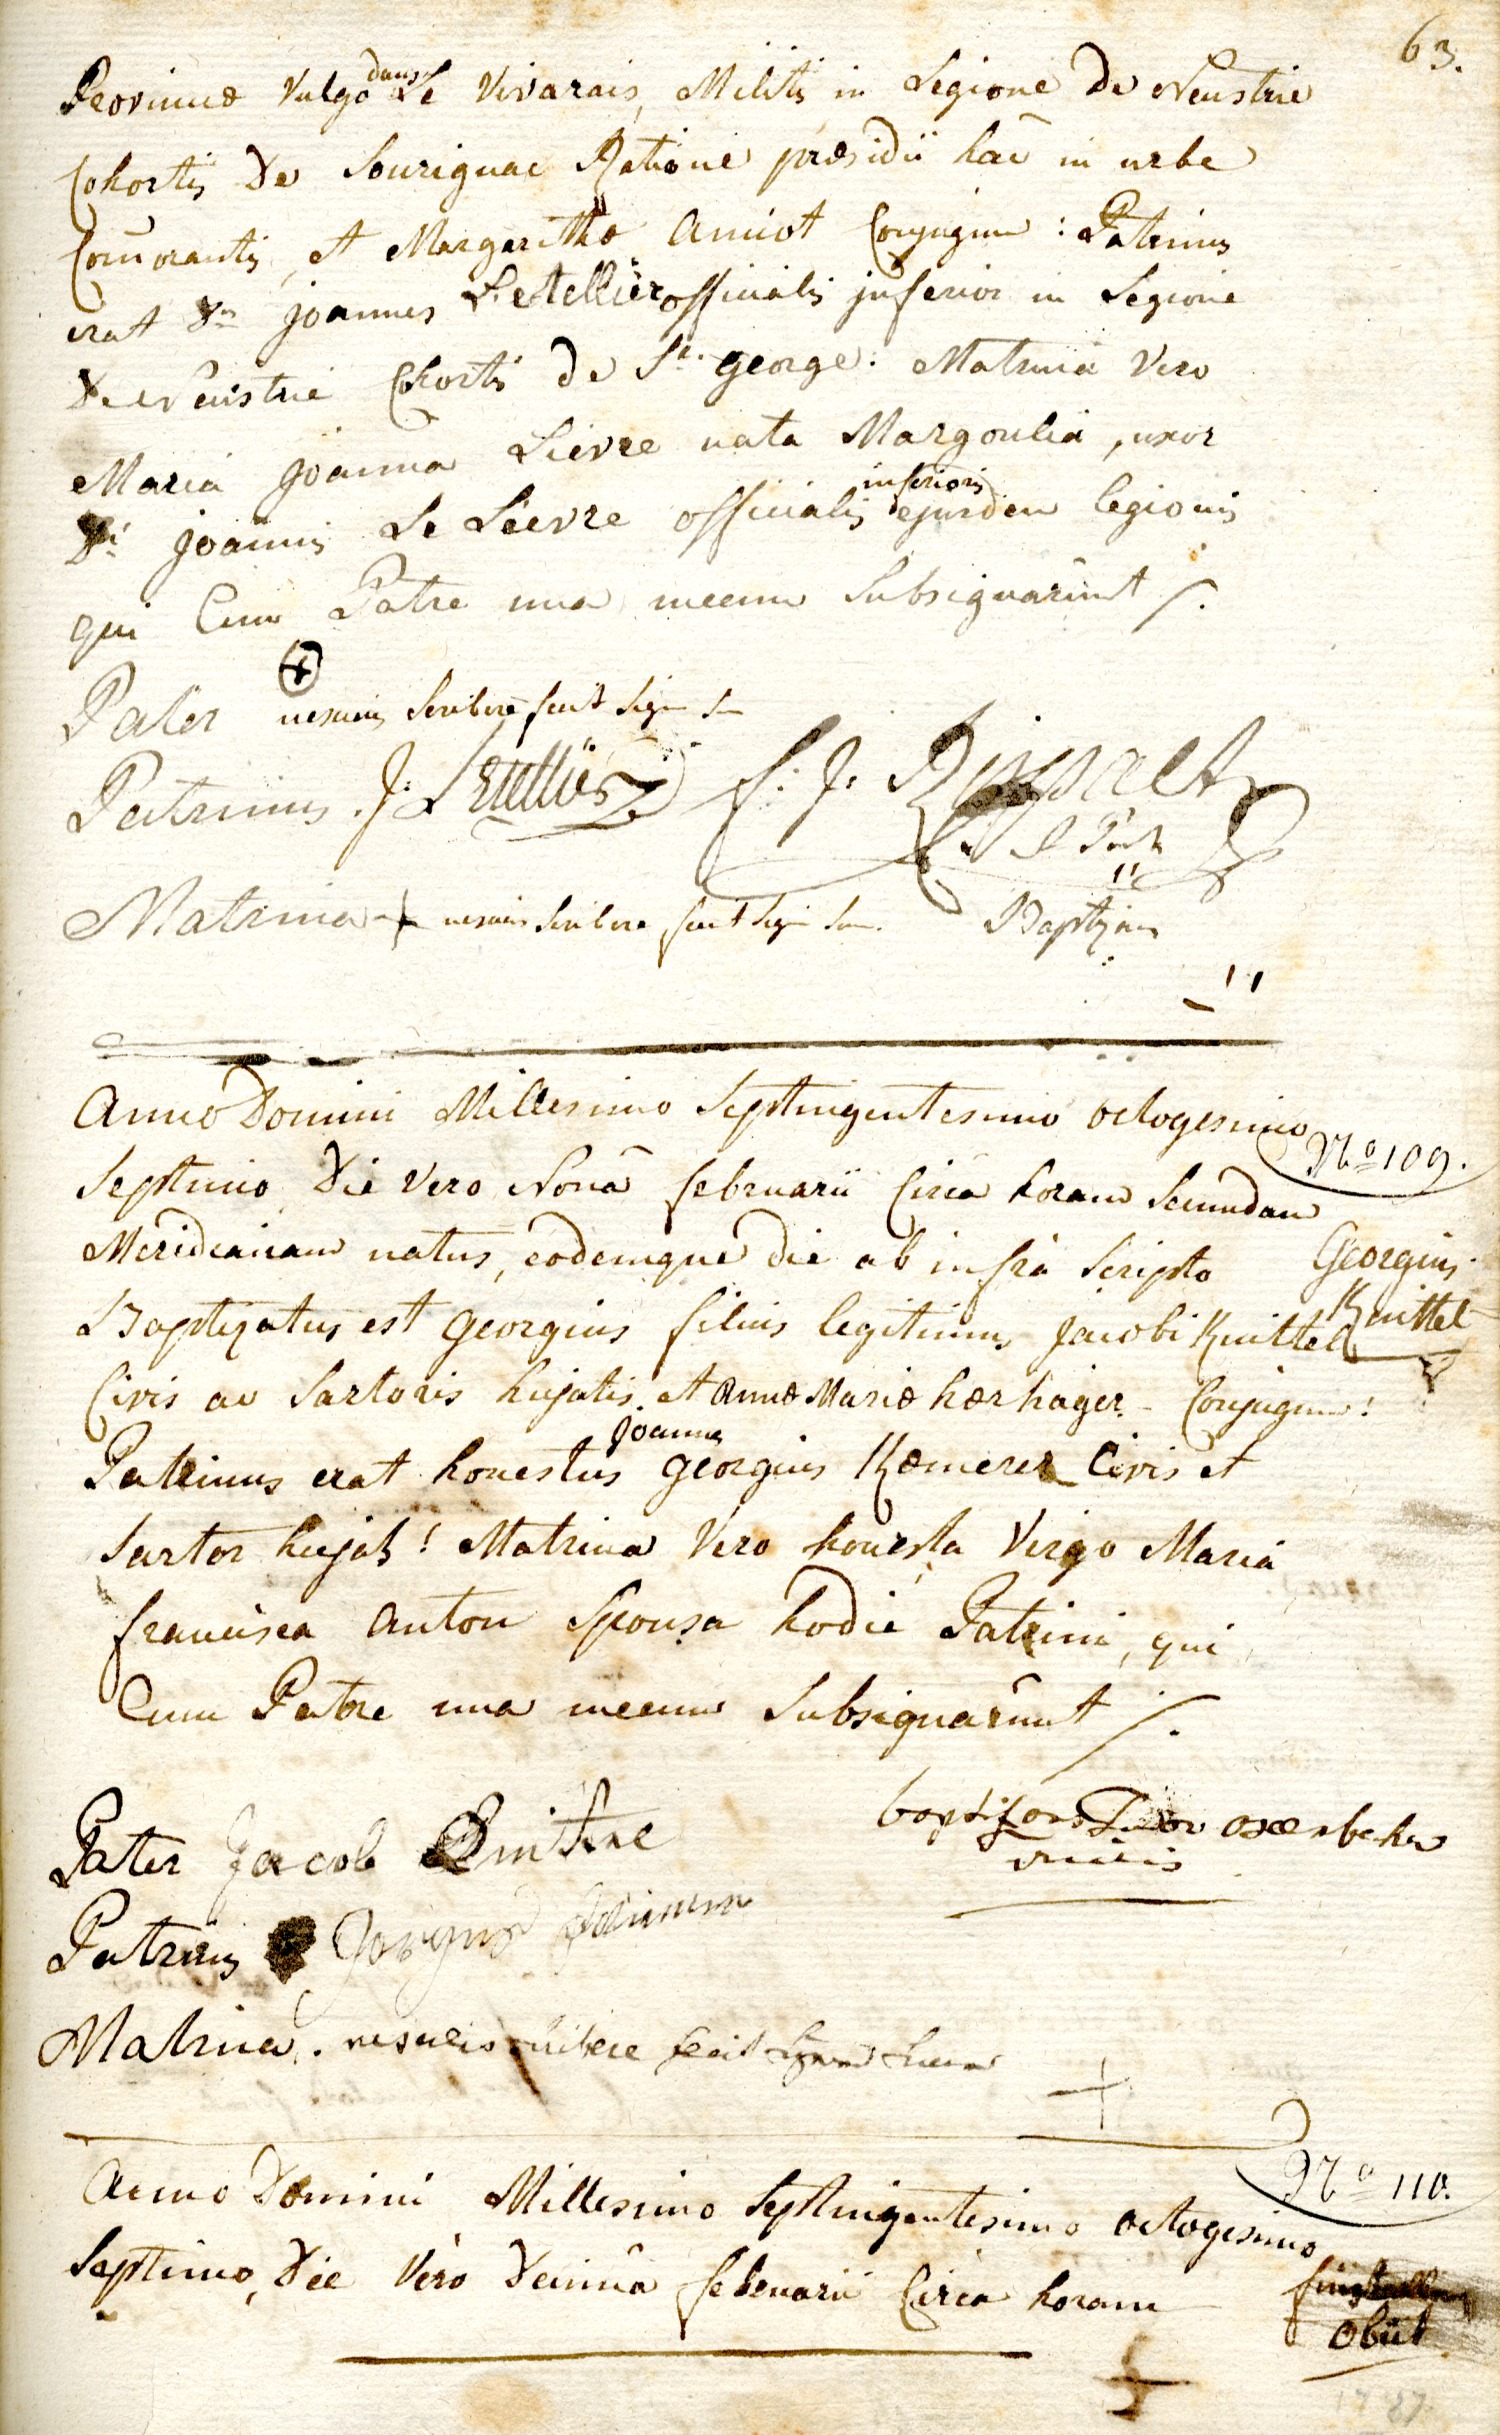 63.
Provinciæ vulgo dans Le Vivarais, Militis in Legione De Neustrie
Cohortis De Souriguac Ratione præsidii hac in urbe
Com̄orantis, et Margarithæ Amiot Conjugum : Patrinus
erat Dn̄ joannes Letellier officialis inferior in Legione
De Neustrie Cohortis de St. george. Matrina Vero
Maria Joanna Lievre nata Margoulia, uxor
Dn̄i joannis Le Lievre officialis inferioris ejusdem legionis
qui Cum Patre una mecum Subsignarunt /.
Pater + nescius scribere fecit sign su
Patrinus. J: Letellier f: J:
Matrina + nescius scribere, fecit sign suu. Baptizans
Anno Domini Millesimo Septingentesimo octogesimo
Septimo Die vero Nonâ februarii Circa horam Secundam
Nº 109.
Meridianam natus, eodemque die ab infrà Scripto
Georgius
Knittel
Baptizatus est georgius filius legitimus jacobi Knittel
Civis ac Sartoris hujatis et Annæ Mariæ hærhager Conjugum!
Patrinus erat honestus Joannes georgius Kæmerer Civis et
Sartor hujas! Matrina Vero honesta Virgo Maria
francisca Anton Sponsa hodie Patrini, qui
Cum Patre una mecum Subsignarunt /.
Pater Jacob
Patrinus
Matrina. nescia scribere fecit signum suum
+
Anno Domini Millesimo Septingentesimo octogesimo
Nº 110.
Septimo, Die Vero Decimâ februarii Circa horam
obiit
1787.